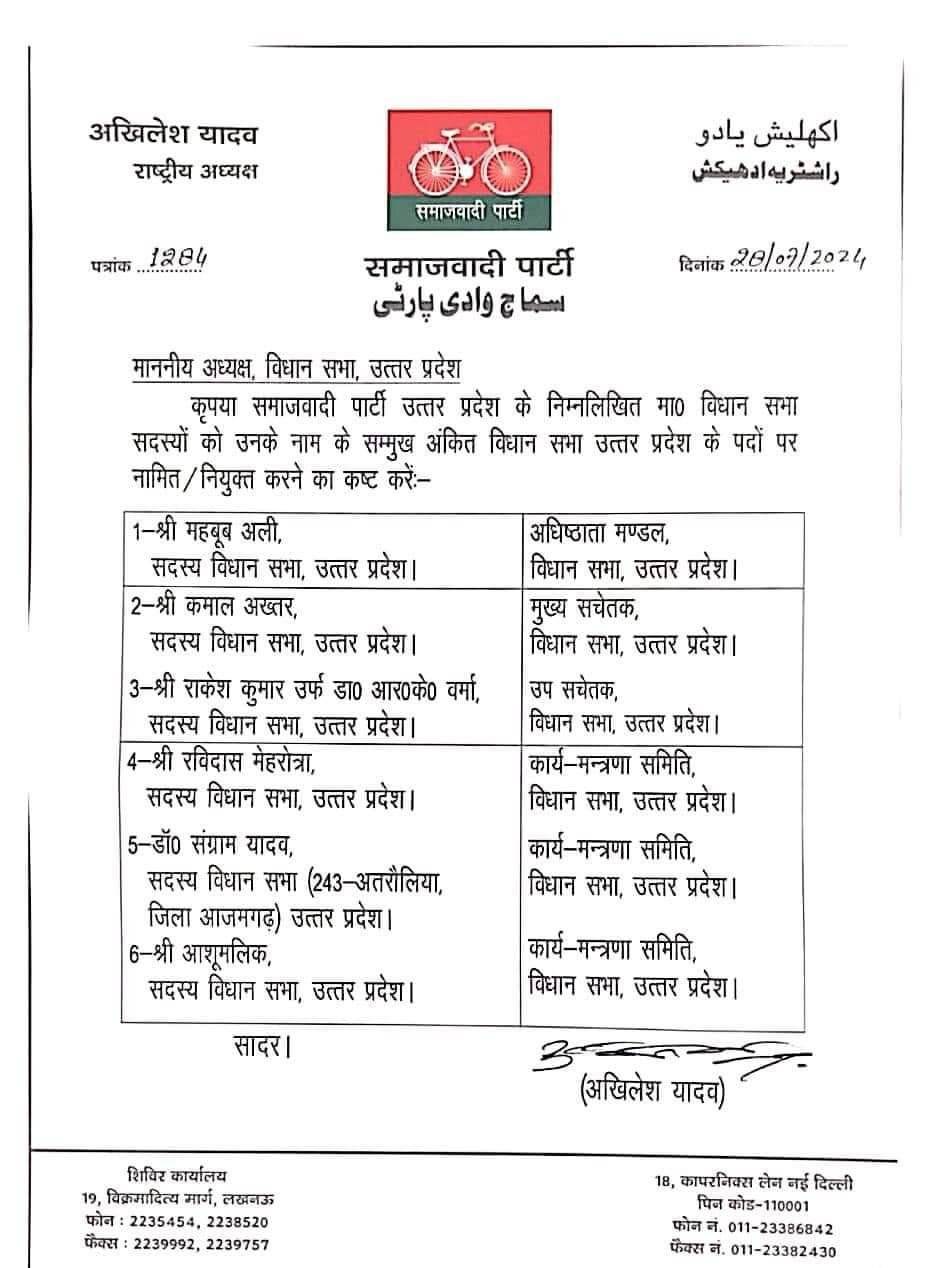 अखिलेश यादव
राष्ट्रीय अध्यक्ष
समाजवादी पार्टी
اکھلیش یادو
راشٹریہ ادھیکش
पत्रांक 1284
समाजवादी पार्टी
سماج وادی پارٹی
दिनांक 28/07/2024
माननीय अध्यक्ष, विधान सभा, उत्तर प्रदेश
कृपया समाजवादी पार्टी उत्तर प्रदेश के निम्नलिखित मा0 विधान सभा
सदस्यों को उनके नाम के सम्मुख अंकित विधान सभा उत्तर प्रदेश के पदों पर
नामित/नियुक्त करने का कष्ट करेंः–
1–श्री महबूब अली,
सदस्य विधान सभा, उत्तर प्रदेश।
अधिष्ठाता मण्डल,
विधान सभा, उत्तर प्रदेश।
2–श्री कमाल अख्तर,
सदस्य विधान सभा, उत्तर प्रदेश।
मुख्य सचेतक,
विधान सभा, उत्तर प्रदेश।
3–श्री राकेश कुमार उर्फ डा0 आर0के0 वर्मा,
सदस्य विधान सभा, उत्तर प्रदेश।
उप सचेतक,
विधान सभा, उत्तर प्रदेश।
4–श्री रविदास मेहरोत्रा,
सदस्य विधान सभा, उत्तर प्रदेश।
कार्य–मन्त्रणा समिति,
विधान सभा, उत्तर प्रदेश।
5–डॉ0 संग्राम यादव,
सदस्य विधान सभा (243–अतरौलिया,
जिला आजमगढ़) उत्तर प्रदेश।
कार्य–मन्त्रणा समिति,
विधान सभा, उत्तर प्रदेश।
6–श्री आशूमलिक,
सदस्य विधान सभा, उत्तर प्रदेश।
कार्य–मन्त्रणा समिति,
विधान सभा, उत्तर प्रदेश।
सादर।
(अखिलेश यादव)
शिविर कार्यालय
19, विक्रमादित्य मार्ग, लखनऊ
फोन : 2235454, 2238520
फैक्स : 2239992, 2239757
18, कापरनिक्स लेन नई दिल्ली
पिन कोड-110001
फोन नं. 011-23386842
फैक्स नं. 011-23382430